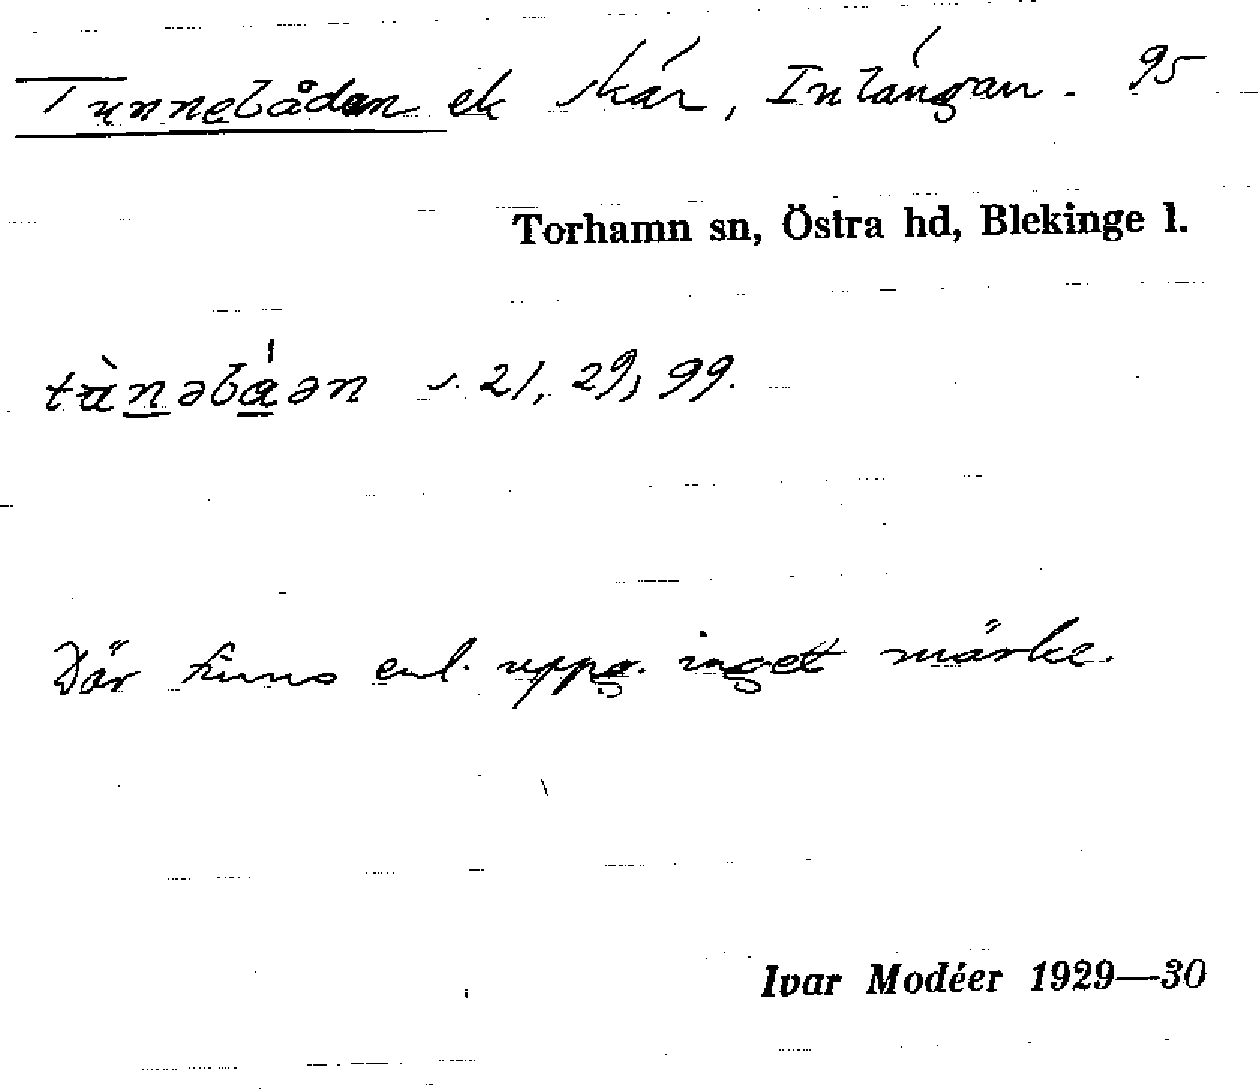 Tunnebådan ek skär, Inlångan. 95
Torhamn sn, Östra hd, Blekinge l.
tùnəbáən s. 21, 29, 99.
Där finns enl. uppg. inget märke.
Ivar Modéer 1929—30